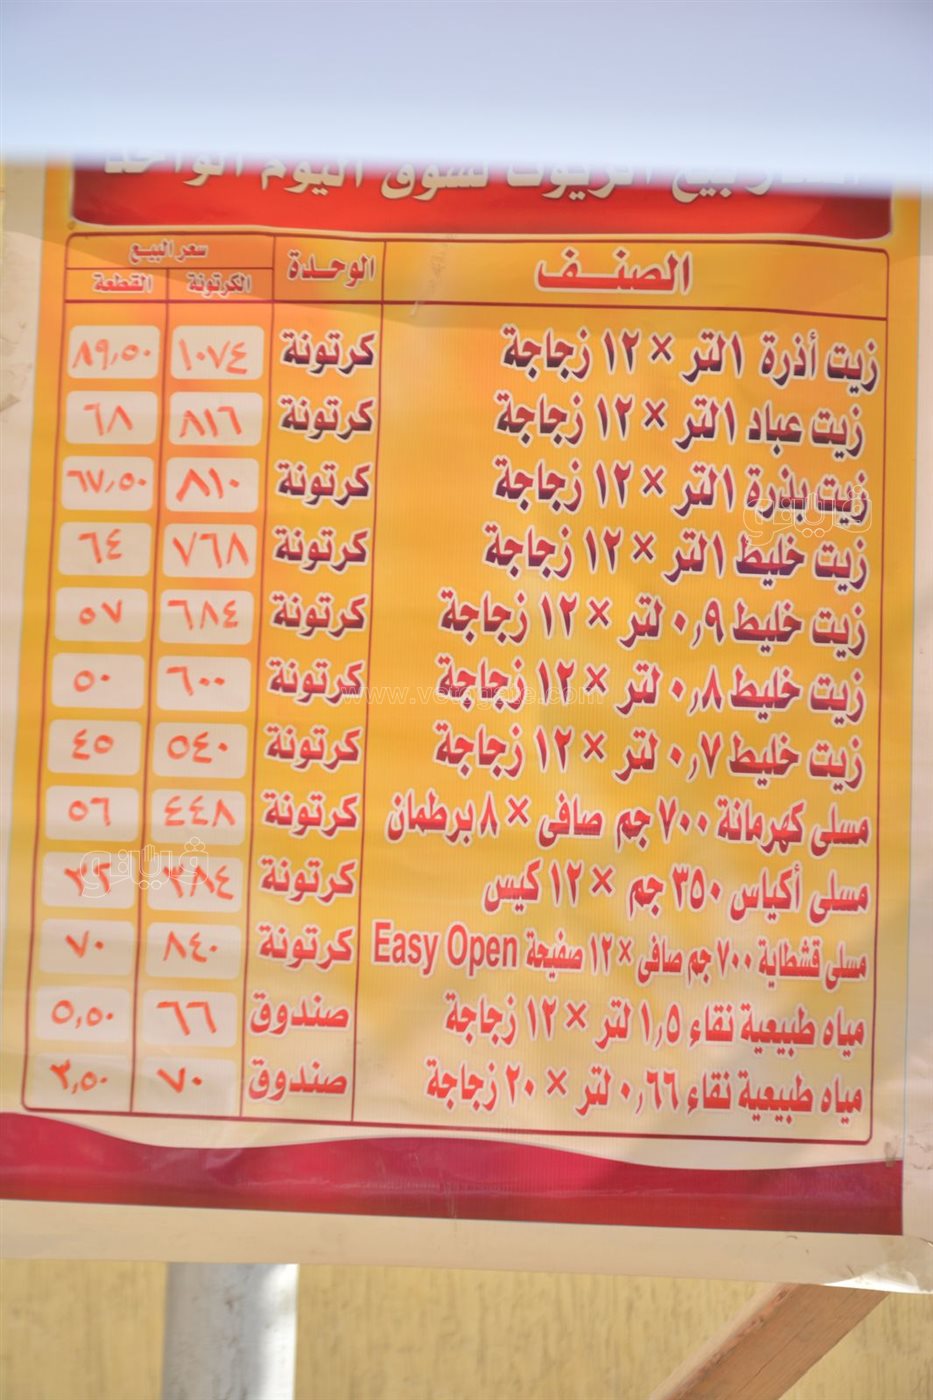 لسوق اليوم الواحد
الصنف الوحدة سعر البيع
الكرتونة القطعة
زيت أذرة ١لتر × ١٢ زجاجة كرتونة ١٠٧٤ ٨٩,٥٠
زيت عباد ١لتر × ١٢ زجاجة كرتونة ٨١٦ ٦٨
زيت بذرة ١لتر × ١٢ زجاجة كرتونة ٨١٠ ٦٧,٥٠
زيت خليط ١لتر × ١٢ زجاجة كرتونة ٧٦٨ ٦٤
زيت خليط ٠,٩ لتر × ١٢ زجاجة كرتونة ٦٨٤ ٥٧
زيت خليط ٠,٨ لتر × ١٢ زجاجة كرتونة ٦٠٠ ٥٠
زيت خليط ٠,٧ لتر × ١٢ زجاجة كرتونة ٥٤٠ ٤٥
مسلى كهرمانة ٧٠٠ جم صافى × ٨ برطمان كرتونة ٤٤٨ ٥٦
مسلى أكياس ٣٥٠ جم × ١٢ كيس كرتونة ٣٨٤ ٣٢
مسلى قشطاية ٧٠٠ جم صافى × ١٢ صفيحة Easy Open كرتونة ٨٤٠ ٧٠
مياه طبيعية نقاء ١,٥ لتر × ١٢ زجاجة صندوق ٦٦ ٥,٥٠
مياه طبيعية نقاء ٠,٦٦ لتر × ٢٠ زجاجة صندوق ٧٠ ٣,٥٠
فيتو
www.vetogate.com
فيتو